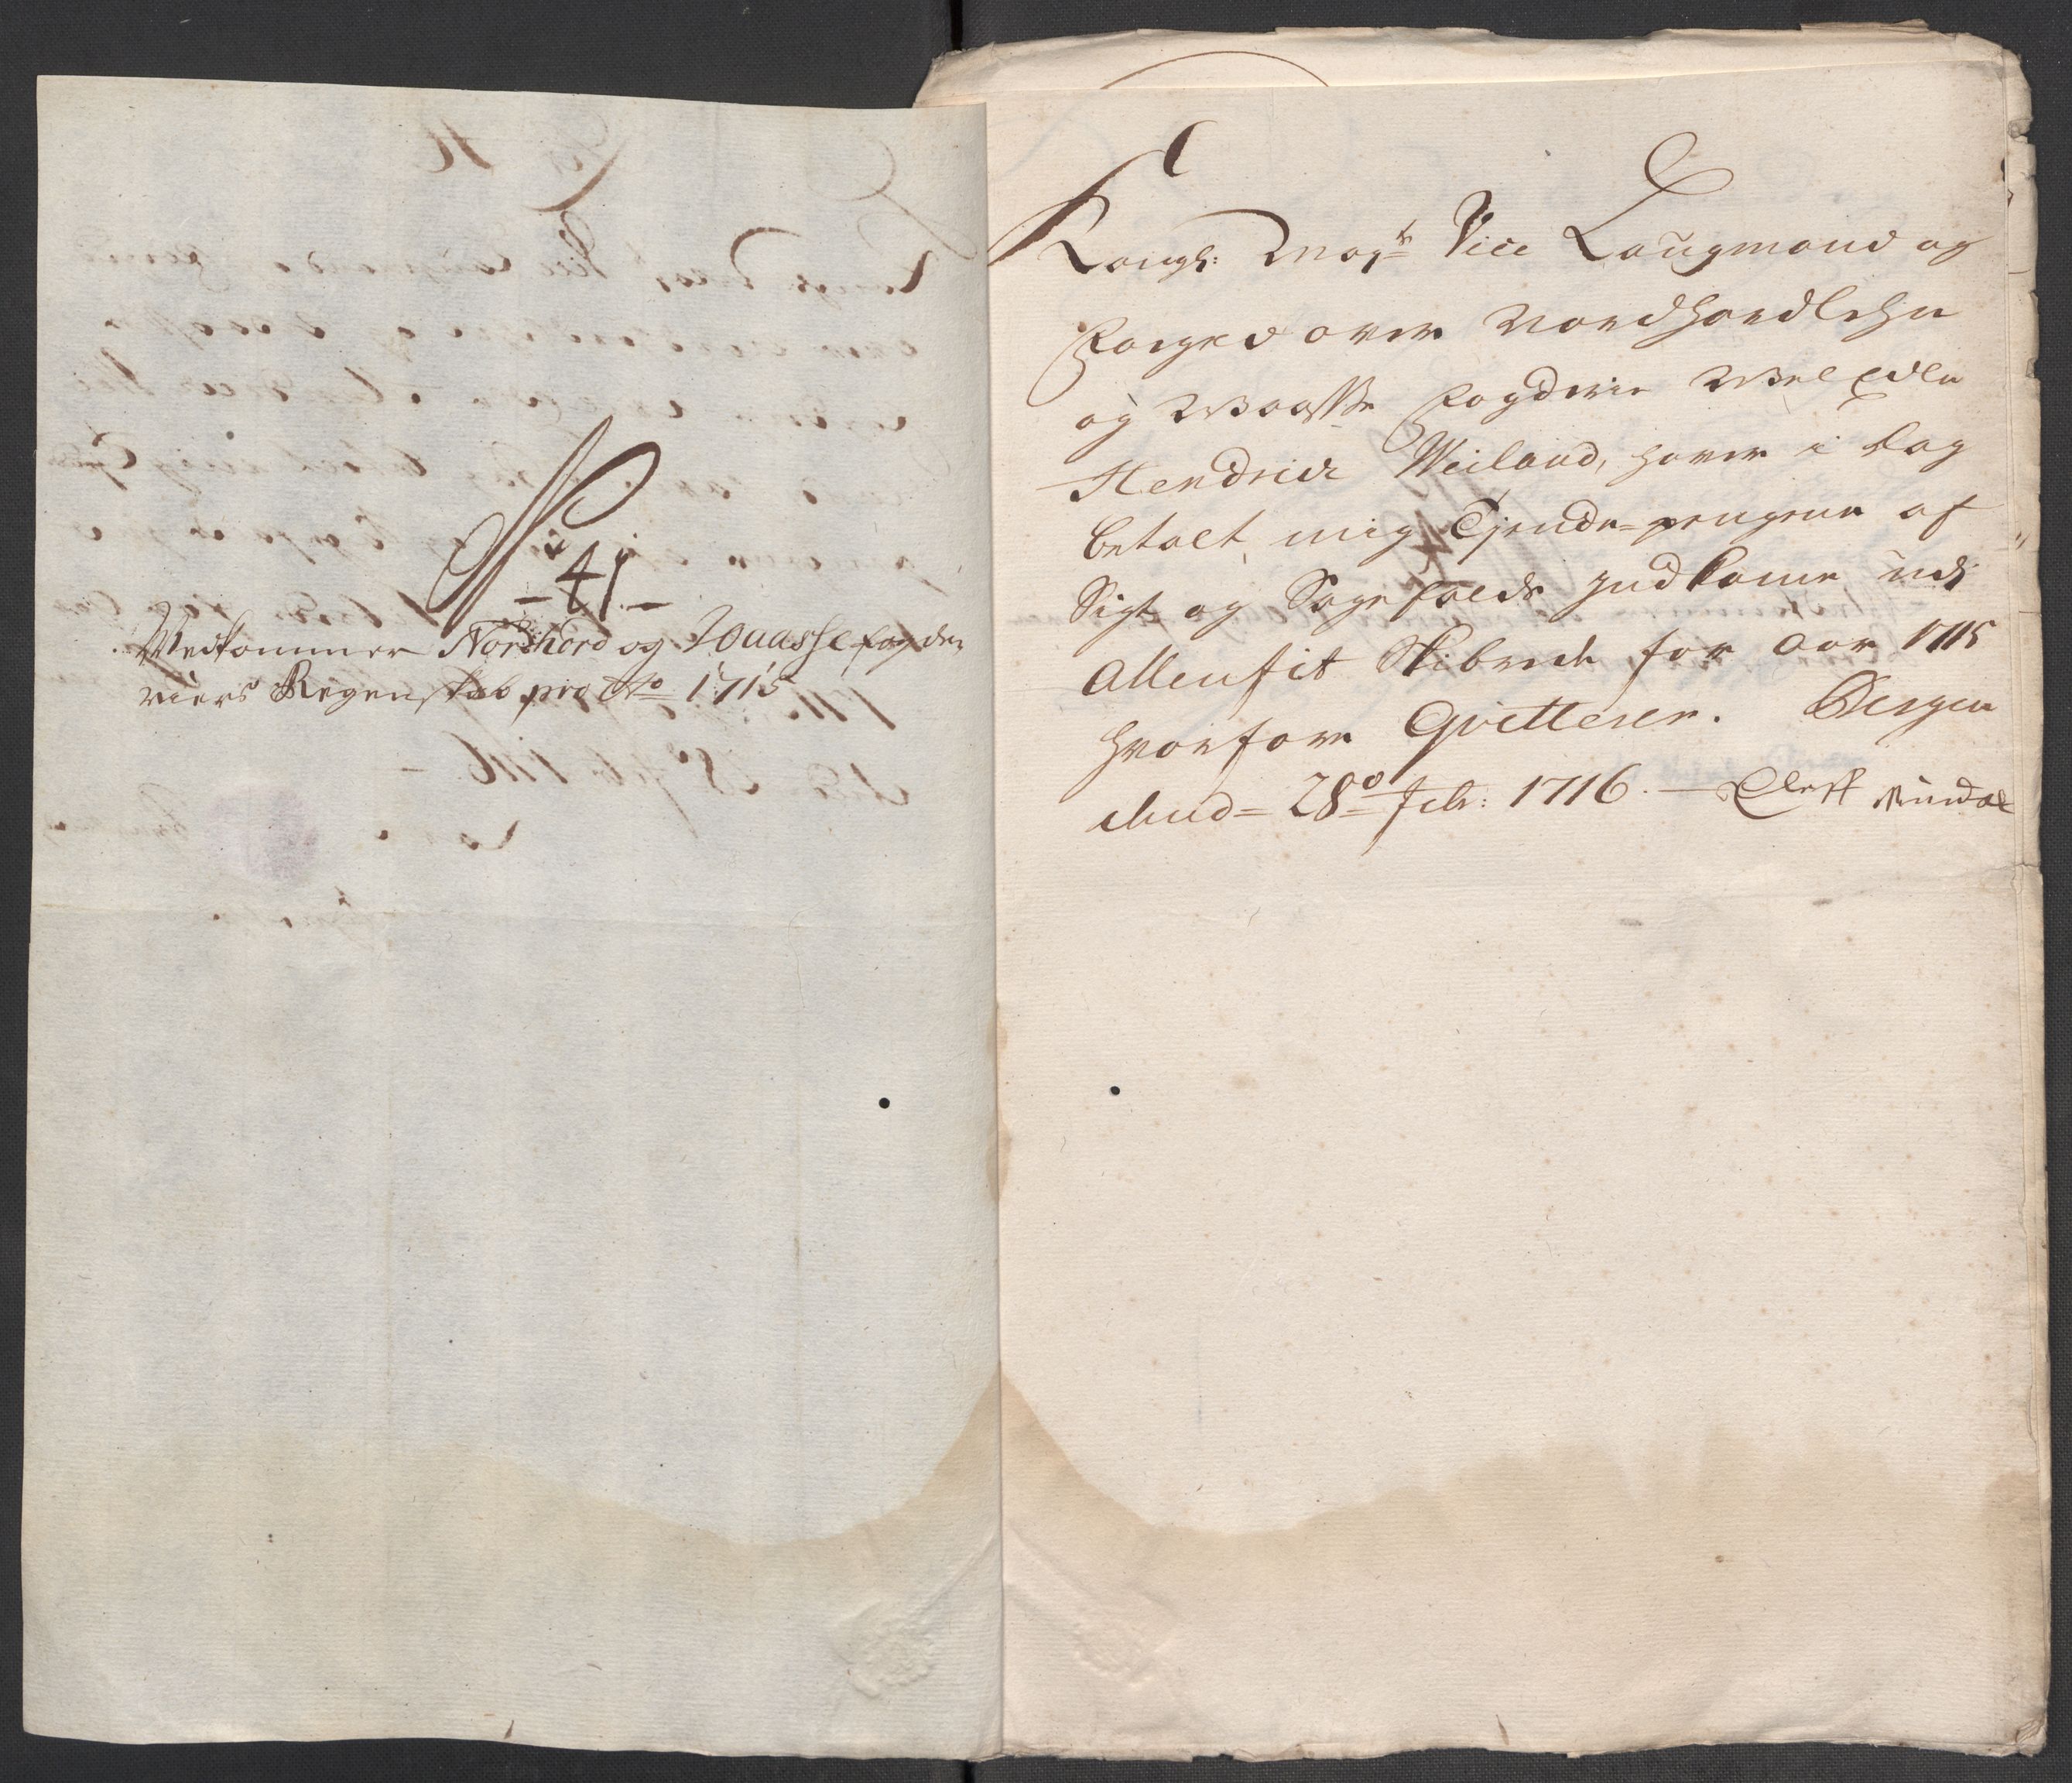 No 41.
Vedkommer Nordhord og Waasse fogde-
riers Regenskab pro Ao 1715
Kongl: Mayts Vice Laugmand og
Foiged over Nordhordlehn
og Waasse Fogderie WelEdle
Hendrich Weiland, haver i dag
betalt mig Tjende-pengene af
Sigt og Sagefalds Indkomme udi
Allenfit Skibrede for Aar 1715
hvorfore Qvitterer. Bergen
d. 28o Febr: 1716.